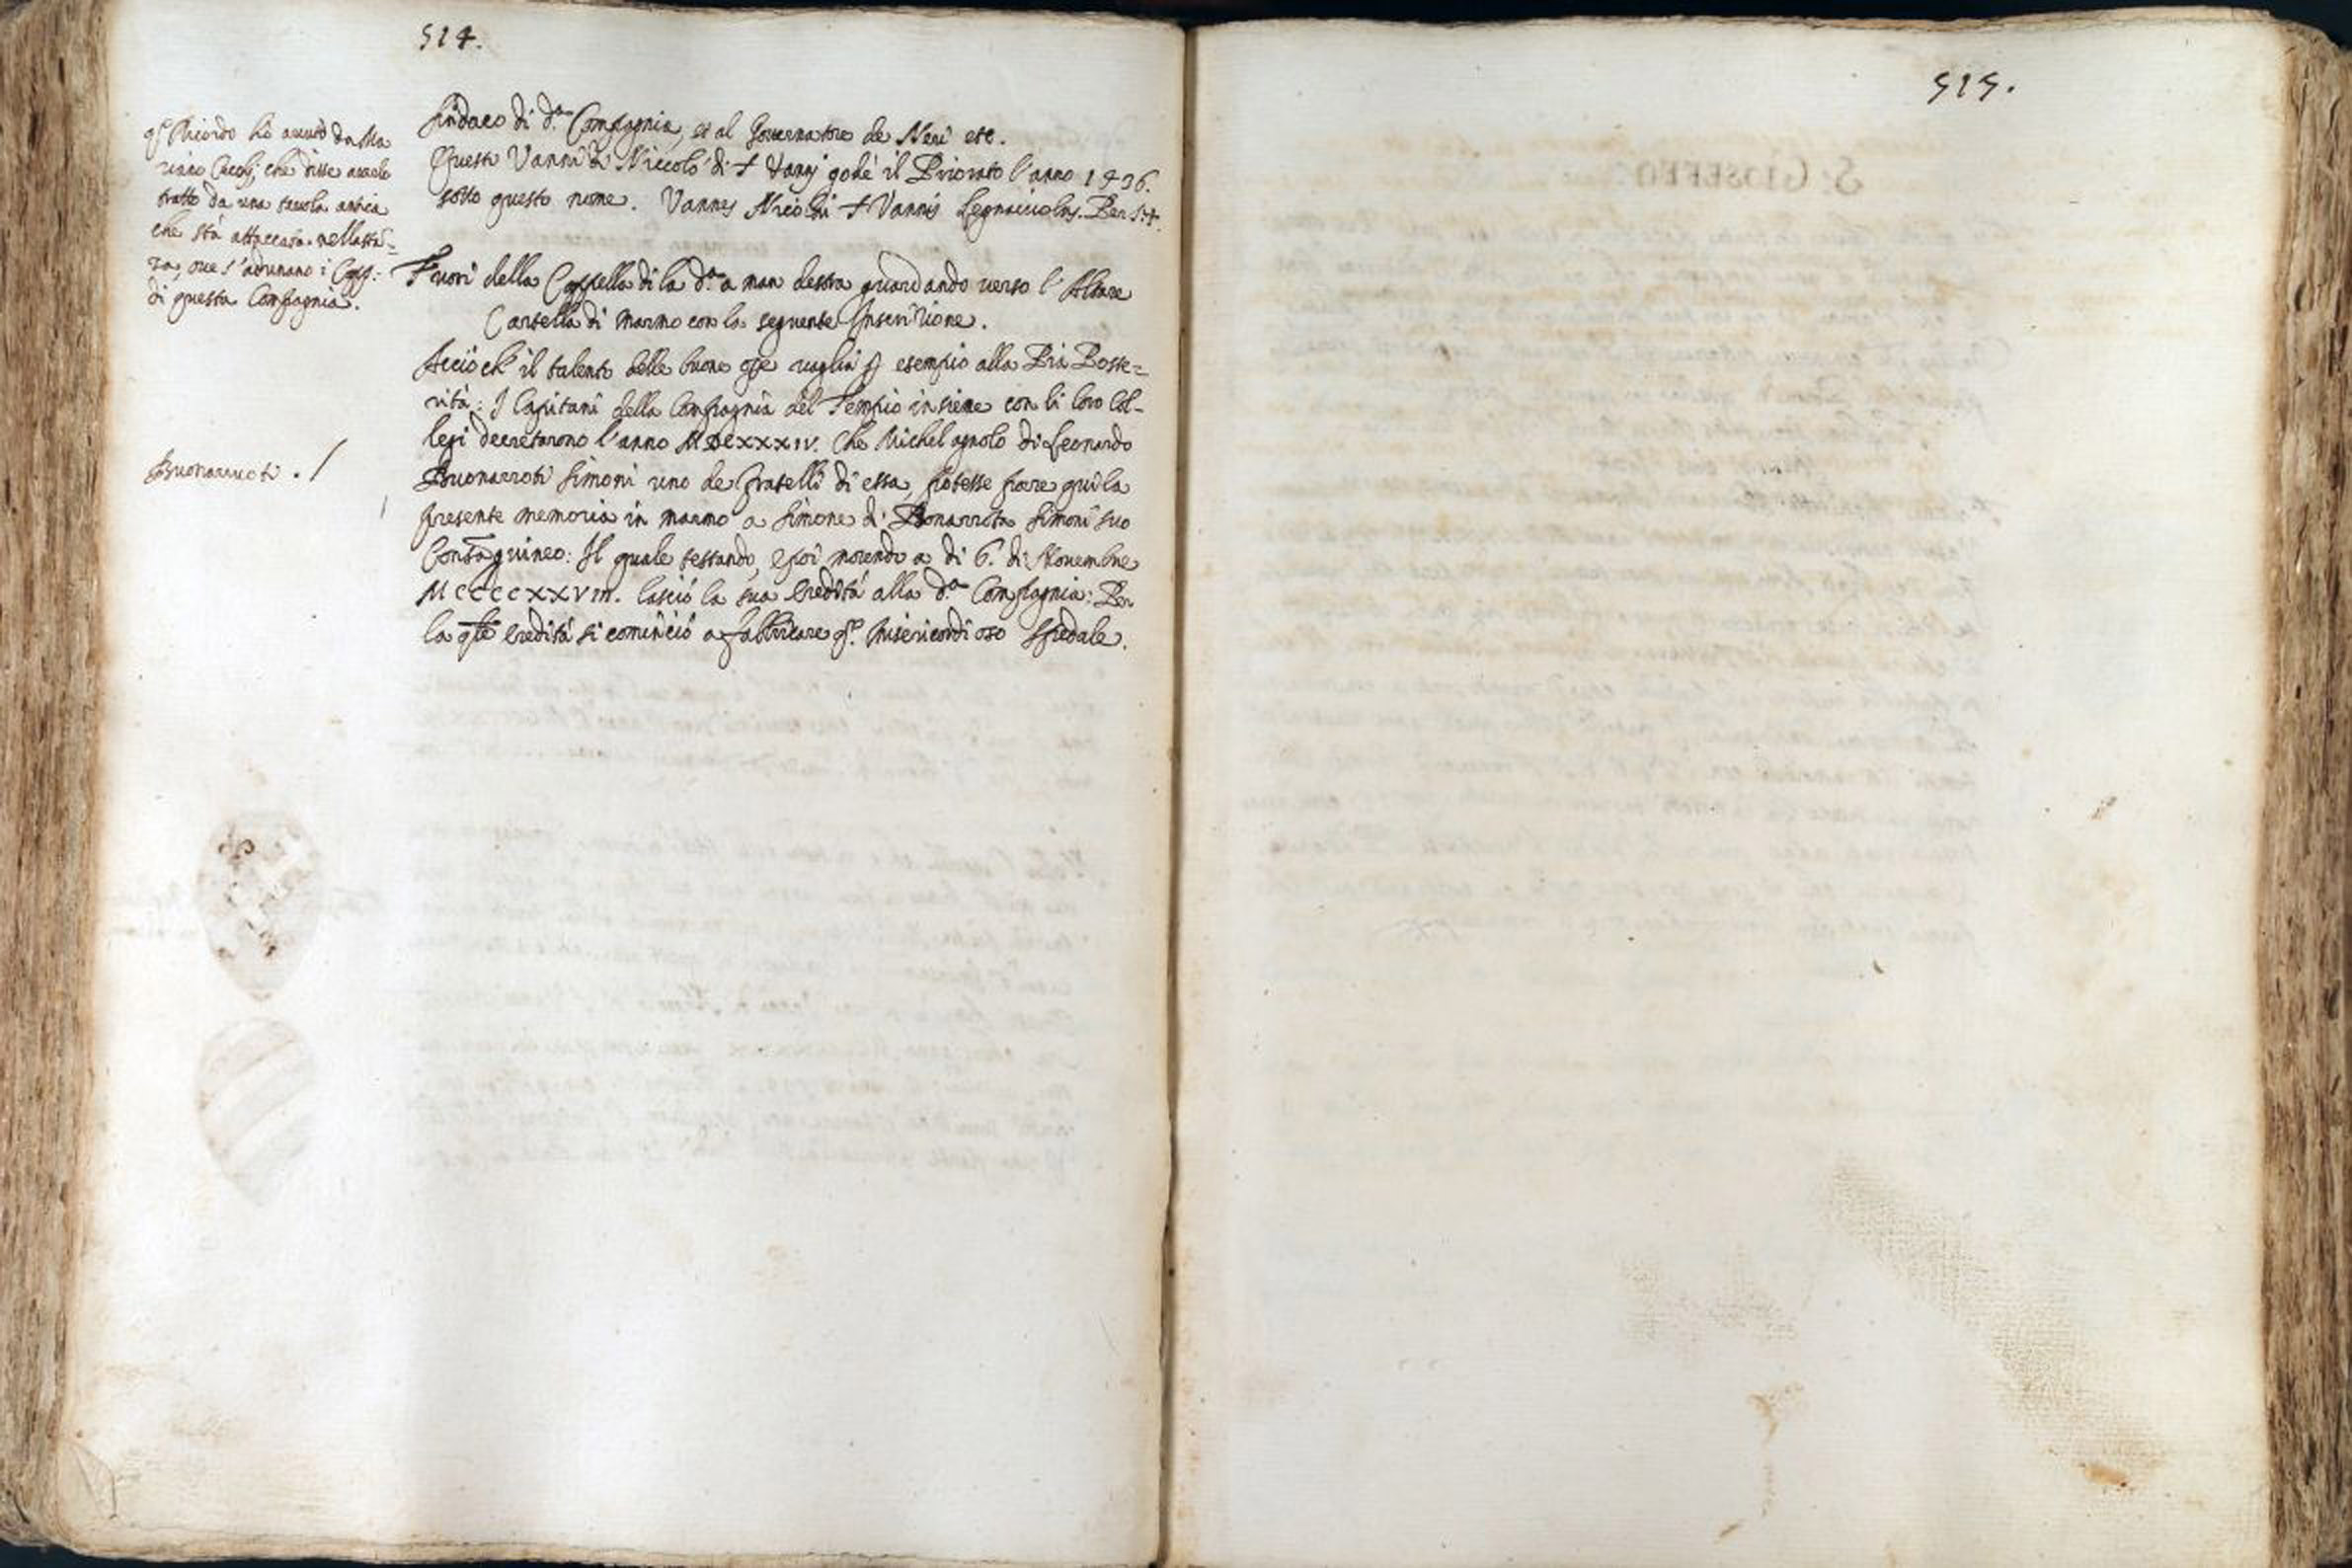 514.
Sindaco di d.ª Compagnia, et al Governatore de Neri etc.
Questo Vanni di Niccolò di + Vanni godè il Priorato l'anno 1436.
sotto questo nome. Vannes Nicolai + Vannis Legnaiuolus. Per S. +.
q.º Ricordo hò avuto da Ma
riano Cecchi, che disse averlo
tratto da una tavola antica
che stà attaccata nella sta=
za, ove s'adunano i Capp.:
di questa Compagnia.
Fuori della Cappella di la d.ª a man destra guardando verso l'Altare
Cartella di Marmo con la seguente Inscrizione.
Acciò ch' il talento delle buone opre vaglia p esempio alla Pia Poste=
rità: I Capitani della Compagnia del Tempio insieme con li loro Col-
legi decretarono l'anno MDCXXXIV. Che Michel agnolo di Leonardo
Buonarroti Simoni uno de fratelli di essa, potesse porre qui la
presente memoria in marmo a Simone di Bonarrota Simoni suo
Consaguineo: Il quale testando, e poi morendo a di 6. di Novembre
MCCCCXXVIII. lasciò la sua eredità alla d.ª Compagnia: Per
la qle eredità si cominciò a fabbricare q.º Misericordioso Spedale.
Buonarruoti . /
515.
S. GIOSEFFO